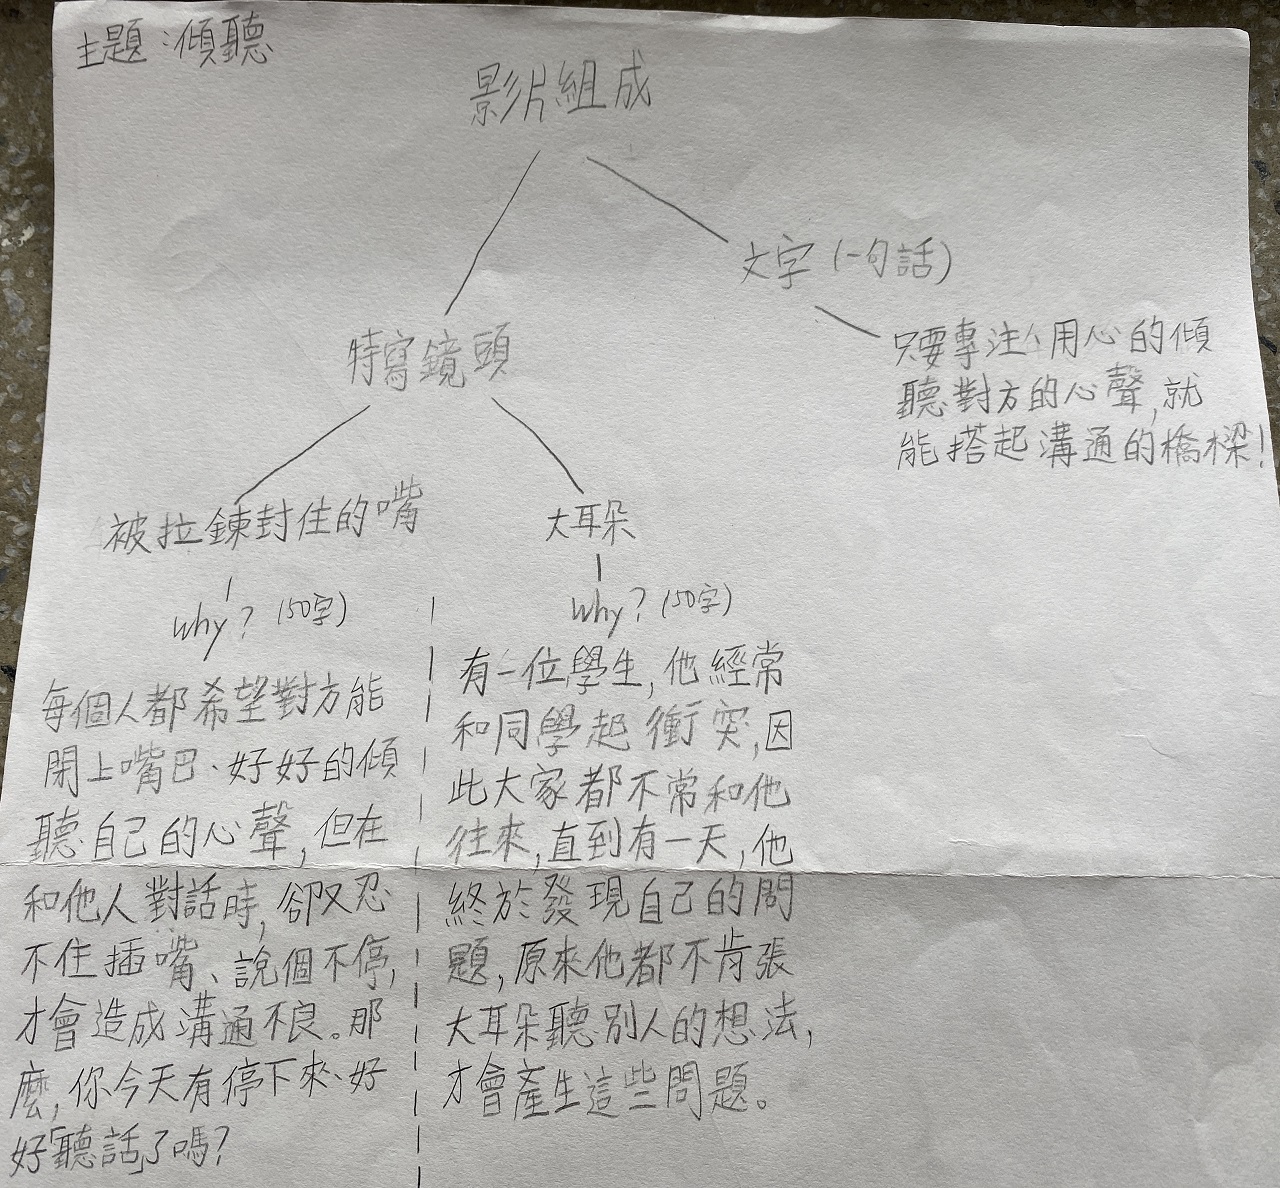 主題:傾聽
影片組成
文字(一句話)
只要專注、用心的傾
聽對方的心聲,就
能搭起溝通的橋樑!
特寫鏡頭
被拉鍊封住的嘴
why?(50字)
每個人都希望對方能
閉上嘴巴、好好的傾
聽自己的心聲,但在
和他人對話時,卻又忍
不住插嘴、說個不停,
才會造成溝通不良。那
麼,你今天有停下來、好
好「聽話」了嗎?
大耳朵
why?(50字)
有一位學生,他經常
和同學起衝突,因
此大家都不常和他
往來,直到有一天,他
終於發現自己的問
題,原來他都不肯張
大耳朵聽別人的想法,
才會產生這些問題。